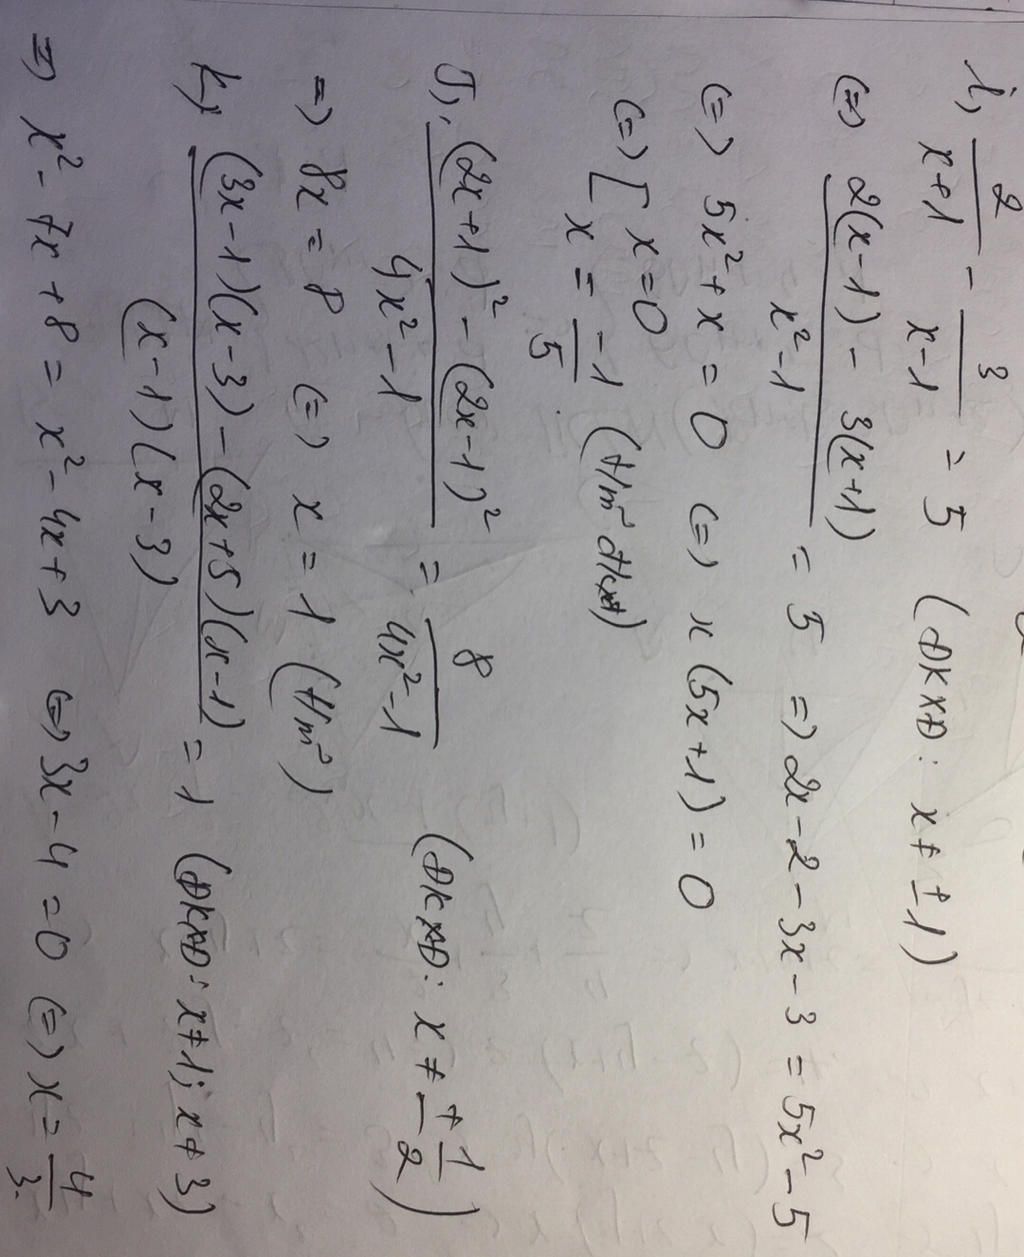 i, 2/(x+1) - 3/(x-1) = 5 (ĐKXĐ: x ≠ ±1)
(=) (2(x-1) - 3(x+1))/(x²-1) = 5 => 2x-2-3x-3 = 5x²-5
(=) 5x²+x = 0 (=) x(5x+1) = 0
(=) [ x=0
x = -1/5 (t/m đkxđ)
J, ((2x+1)² - (2x-1)²)/(4x²-1) = 8/(4x²-1) (ĐKXĐ: x ≠ ±1/2)
=> 8x = 8 (=) x = 1 (t/m)
k, ((3x-1)(x-3) - (2x+5)(x-1))/((x-1)(x-3)) = 1 (ĐKXĐ: x≠1; x≠3)
=> x² - 7x + 8 = x² - 4x + 3 (=) 3x - 4 = 0 (=) x = 4/3.